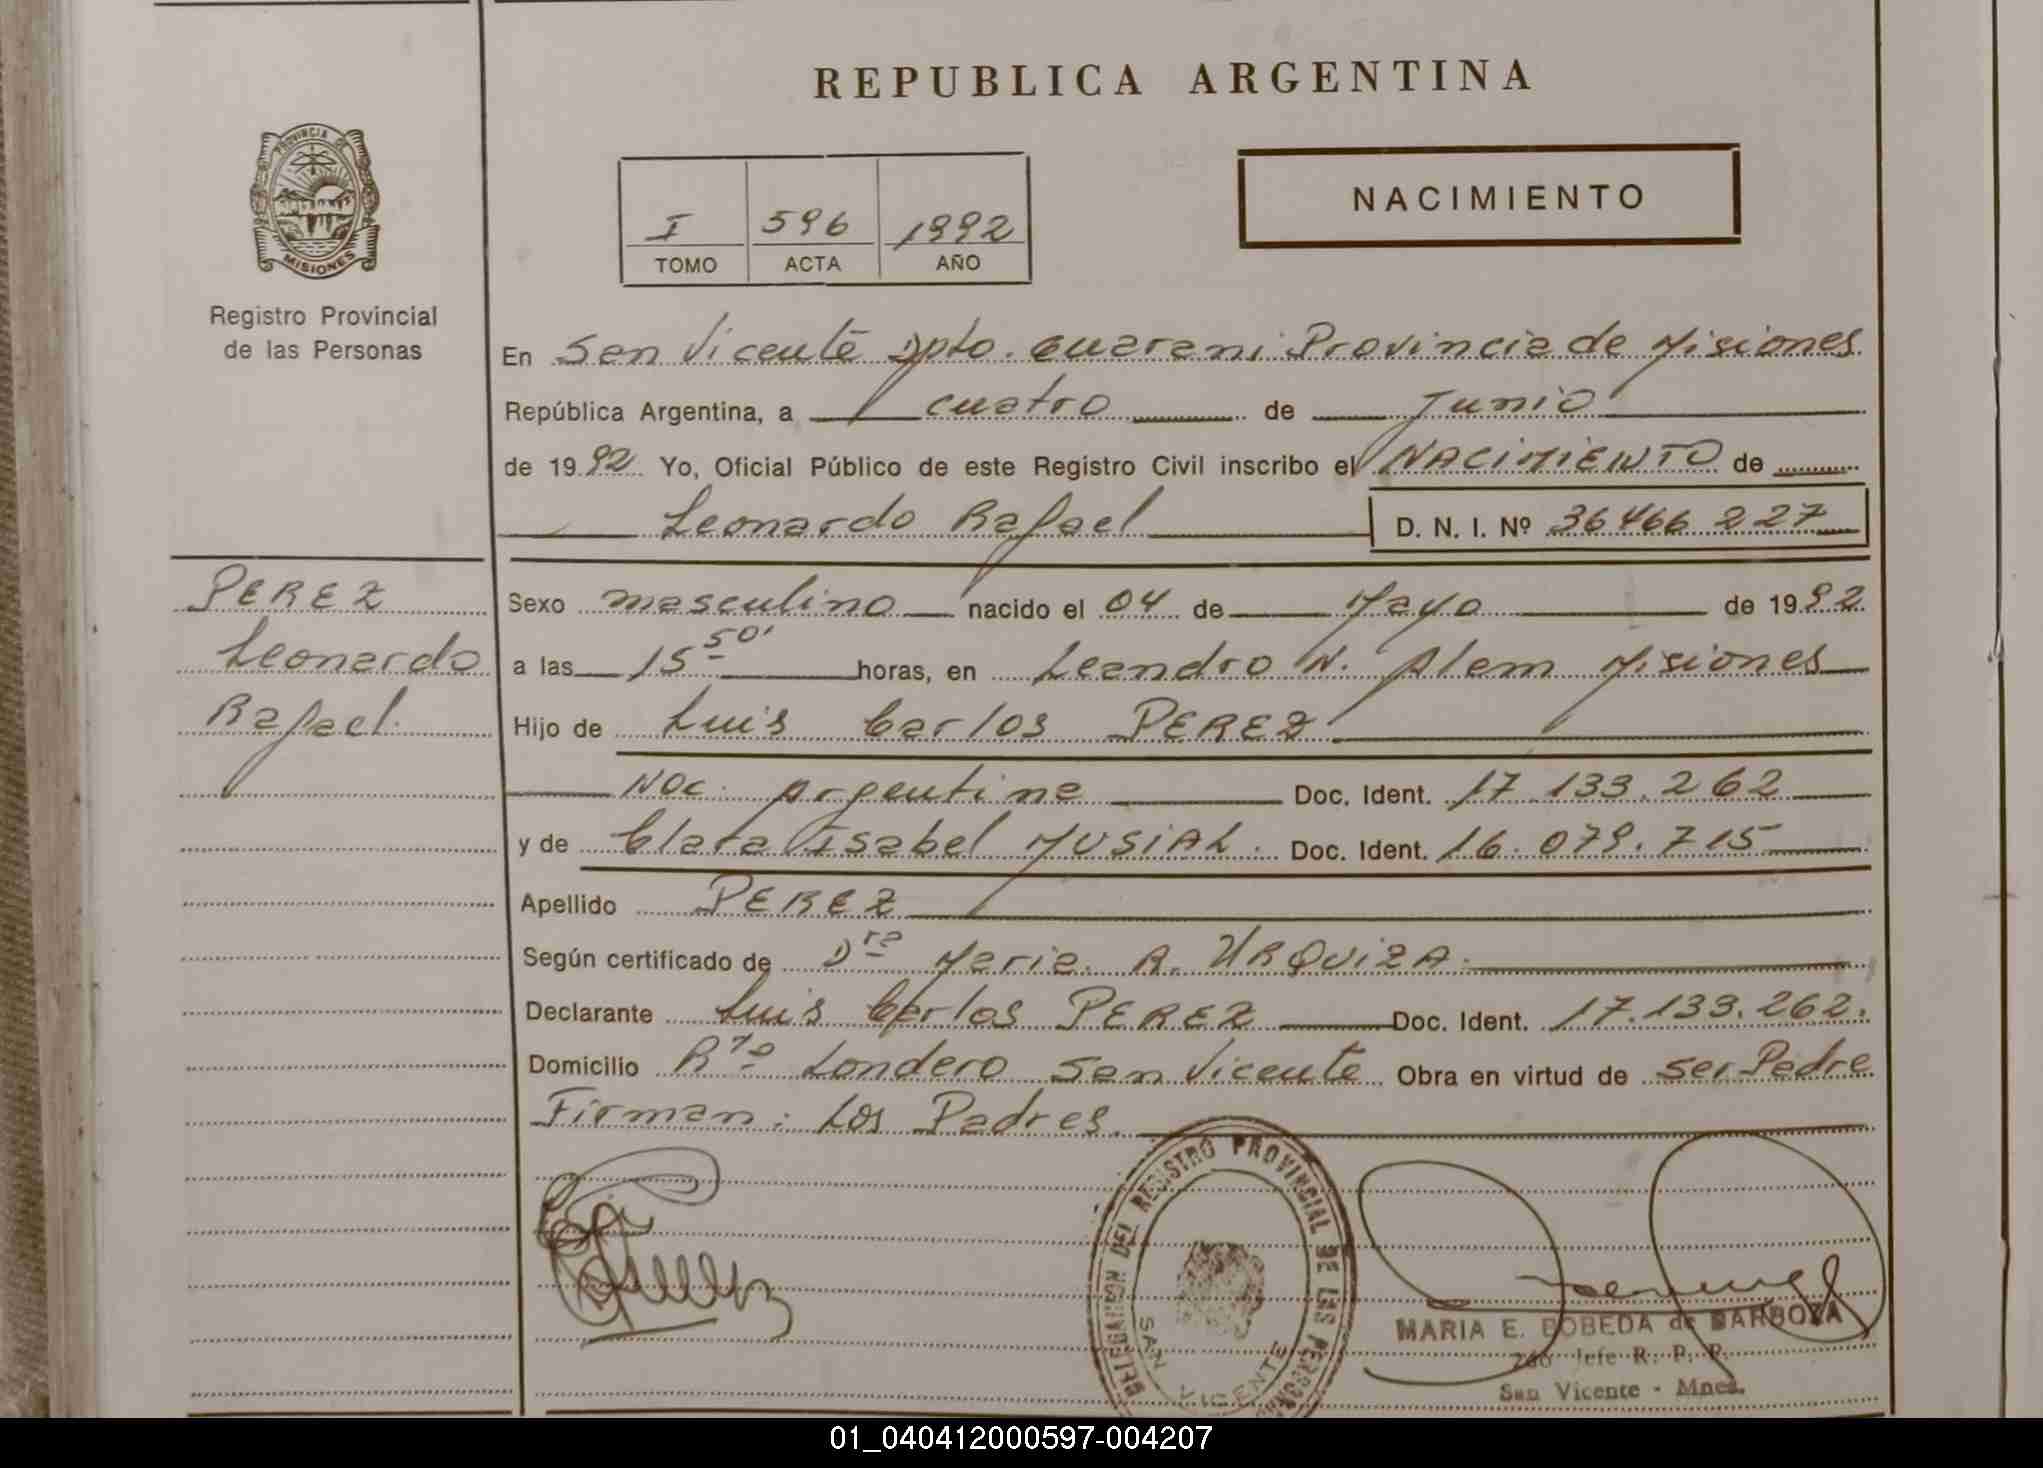 REPUBLICA ARGENTINA
PROVINCIA DE
MISIONES
Registro Provincial
de las Personas
NACIMIENTO
I 596 1992
TOMO ACTA AÑO
En San Vicente Dpto. Guarani Provincia de Misiones
República Argentina, a cuatro de Junio
de 1992 Yo, Oficial Público de este Registro Civil inscribo el NACIMIENTO de
Leonardo Rafael D. N. I. Nº 36466227
PEREZ
Leonardo
Rafael.
Sexo masculino nacido el 04 de Mayo de 1992
a las 15 50' horas, en Leandro N. Alem Misiones
Hijo de Luis Carlos PEREZ
Nac. Argentina Doc. Ident. 17.133.262
y de Clara Isabel MUSIAL. Doc. Ident. 16.079.715
Apellido PEREZ
Según certificado de Dra Maria. R. URQUIZA.
Declarante Luis Carlos PEREZ Doc. Ident. 17.133.262.
Domicilio Rto Londero San Vicente Obra en virtud de ser Padre
Firman: Los Padres.
DELEGACION DEL REGISTRO PROVINCIAL DE LAS PERSONAS
SAN VICENTE
MARIA E. BOBEDA de BARBOZA
2do Jefe R. P. P.
San Vicente - Mnes.
01_040412000597-004207